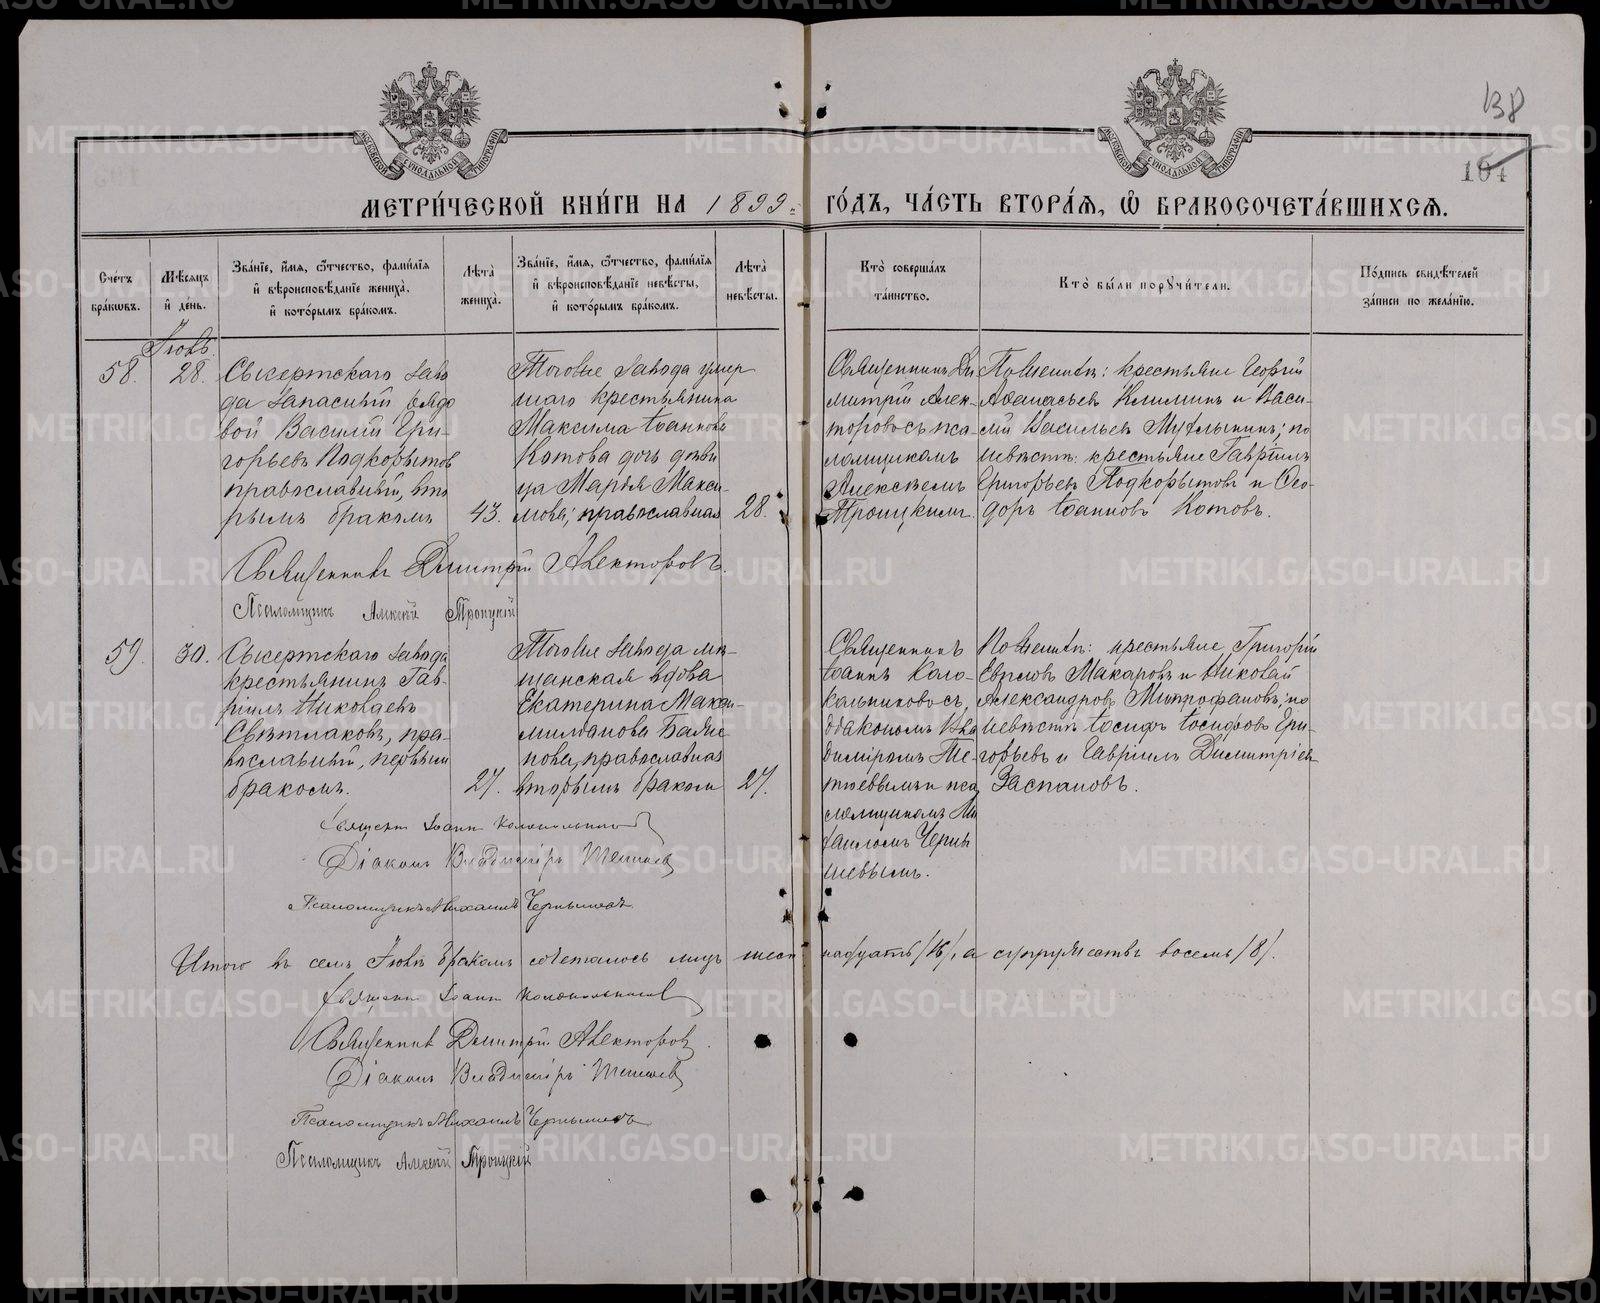 138
104
МЕТРИ́ЧЕСКОЙ КНИ́ГИ НА 1899 ГО́ДЪ, ЧА́СТЬ ВТОРА́Я, Ѡ БРАКОСОЧЕТА́ВШИХСЯ.
Сче́тъ бра́ковъ.
Мѣ́сяцъ и҆ де́нь.
Зва́нїе, и҆́мя, ѻ҆́тчество, фами́лїя и҆ вѣроисповѣ́данїе жениха̀, и҆ кото́рымъ бра́комъ.
Лѣта̀ жениха̀.
Зва́нїе, и҆́мя, ѻ҆́тчество, фами́лїя и҆ вѣроисповѣ́данїе невѣ́сты, и҆ кото́рымъ бра́комъ.
Лѣта̀ невѣ́сты.
Кто̀ соверша́лъ та́инство.
Кто̀ бы́ли поручи́тели.
По́дпись свидѣ́телей за́писи по жела́нїю.
Іюль.
58.
28.
Сысертскаго заво
да запасный рядо
вой Василій Гри-
горьевъ Подкорытов
православный, вто
рымъ бракомъ
43.
Тогоже завода умер
шаго крестьянина
Максима Іоаннова
Котова дочь дѣви
ца Марія Макси-
мова, православная
28.
Священникъ Ди
митрій Алек-
торовъ съ пса
ломщикомъ
Алексѣемъ
Троицкимъ.
По женихѣ: крестьяне Георгій
Аѳанасьевъ Климинъ и Васи-
лій Васильевъ Мухлынинъ; по
невѣстѣ: крестьяне Гавріилъ
Григорьевъ Подкорытовъ и Ѳео
доръ Іоанновъ Котовъ.
Священникъ Димитрій Алекторовъ.
Псаломщикъ Алексѣй Троицкій
59.
30.
Сысертскаго завода
крестьянинъ Гав-
ріилъ Николаевъ
Свѣтлаковъ, пра-
вославный, первымъ
бракомъ.
27.
Тогоже завода мѣ-
щанская вдова
Екатерина Макси-
миліанова
нова, православная
вторымъ бракомъ
27.
Священникъ
Іоаннъ Коло-
кольниковъ съ
діакономъ Вла
диміромъ
и пса
ломщикомъ Ми
хаиломъ Черны
шевымъ.
По женихѣ: крестьяне Григорій
Макаровъ и Николай
Александровъ Митрофановъ; по
невѣстѣ Іосифъ Іосифовъ Гри-
горьевъ и Гавріилъ Димитріев
Заспановъ.
Священ Іоаннъ Колокольниковъ
Діаконъ Владиміръ
Псаломщикъ Михаилъ Чернышевъ
Итого въ семъ Іюлѣ бракомъ сочеталось лицъ шест надцать /16/, а супружествъ восемь /8/.
Священ Іоаннъ Колокольниковъ
Священникъ Димитрій Алекторовъ.
Діаконъ Владиміръ
Псаломщикъ Михаилъ Чернышевъ
Псаломщикъ Алексѣй Троицкій
METRIKI.GASO-URAL.RU